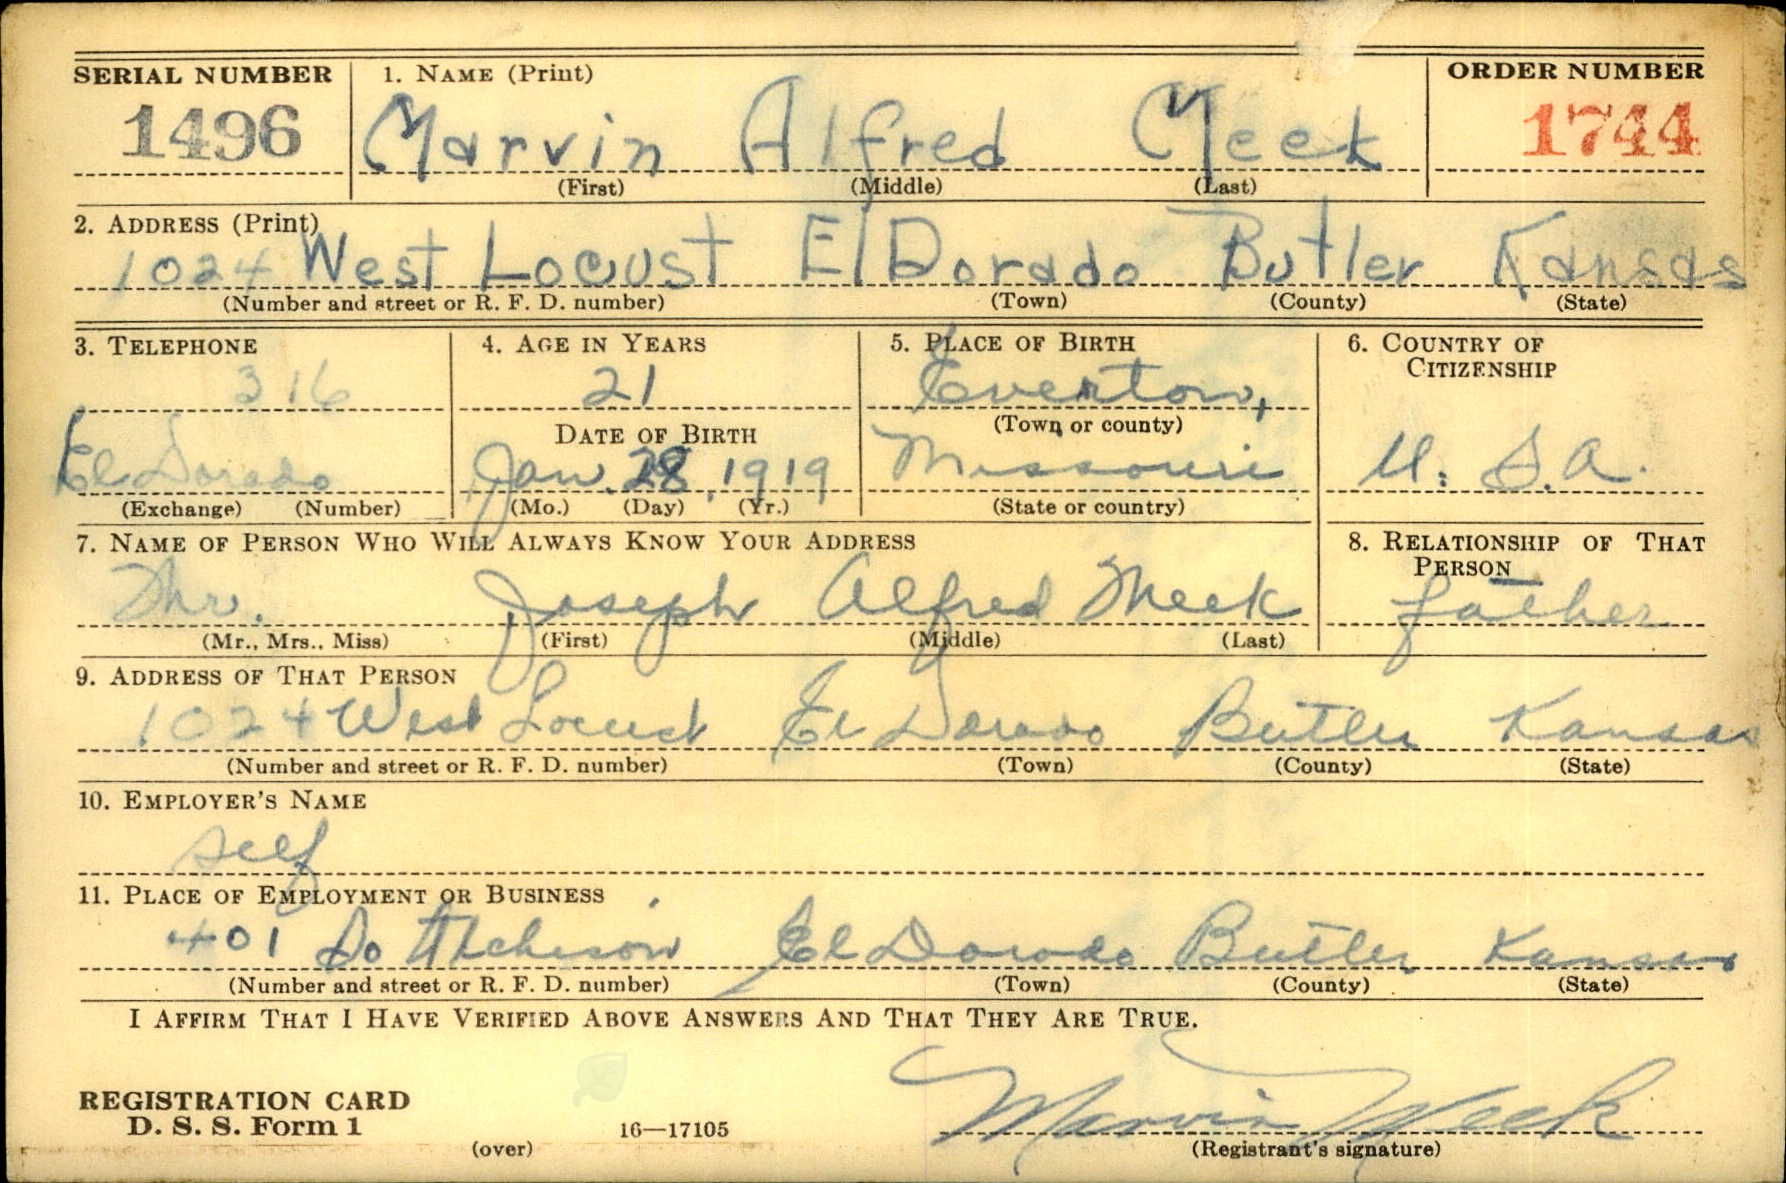 SERIAL NUMBER 1. NAME (Print) ORDER NUMBER
1496 Marvin Alfred Meek 1744
(First) (Middle) (Last)
2. ADDRESS (Print)
1024 West Locust El Dorado Butler Kansas
(Number and street or R. F. D. number) (Town) (County) (State)
3. TELEPHONE 4. AGE IN YEARS 5. PLACE OF BIRTH 6. COUNTRY OF CITIZENSHIP
316 21 Everton,
DATE OF BIRTH (Town or county)
El Dorado Jan. 28, 1919 Missouri U. S. A.
(Exchange) (Number) (Mo.) (Day) (Yr.) (State or country)
7. NAME OF PERSON WHO WILL ALWAYS KNOW YOUR ADDRESS 8. RELATIONSHIP OF THAT PERSON
Mr. Joseph Alfred Meek father
(Mr., Mrs., Miss) (First) (Middle) (Last)
9. ADDRESS OF THAT PERSON
1024 West Locust El Dorado Butler Kansas
(Number and street or R. F. D. number) (Town) (County) (State)
10. EMPLOYER'S NAME
self
11. PLACE OF EMPLOYMENT OR BUSINESS
401 So Atchison El Dorado Butler Kansas
(Number and street or R. F. D. number) (Town) (County) (State)
I AFFIRM THAT I HAVE VERIFIED ABOVE ANSWERS AND THAT THEY ARE TRUE.
REGISTRATION CARD
D. S. S. Form 1 Marvin Meek
(over) 16—17105 (Registrant's signature)